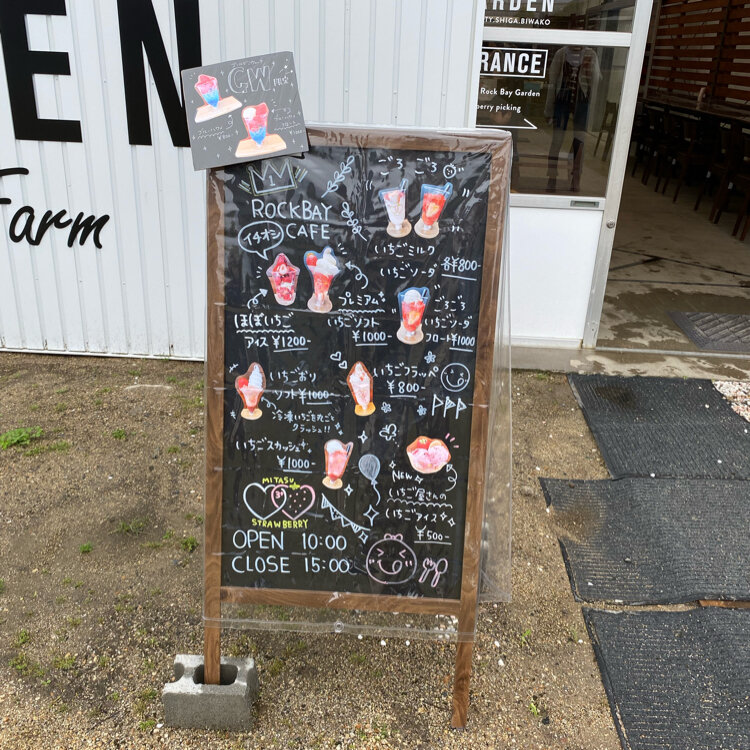 EN
Farm
GARDEN
TY.SHIGA.BIWAKO
RANCE
Rock Bay Garden
berry picking
GW
1
ROCKBAY
CAFE
イチオシ
ごろごろ
いちごミルク
いちごソーダ 各¥800-
ほぼいちご
アイス ¥1200-
プレミアム
いちごソフト
¥1000-
ごろごろ
いちごソーダ
フロート¥1000
いちごおり
ソフト ¥1000-
冷凍いちごを丸ごと
クラッシュ!!
いちごフラッペ
¥800-
いちごスカッシュ
¥1000-
NEW
いちご屋さんの
いちごアイス
¥500-
MITASU
STRAWBERRY
OPEN 10:00
CLOSE 15:00